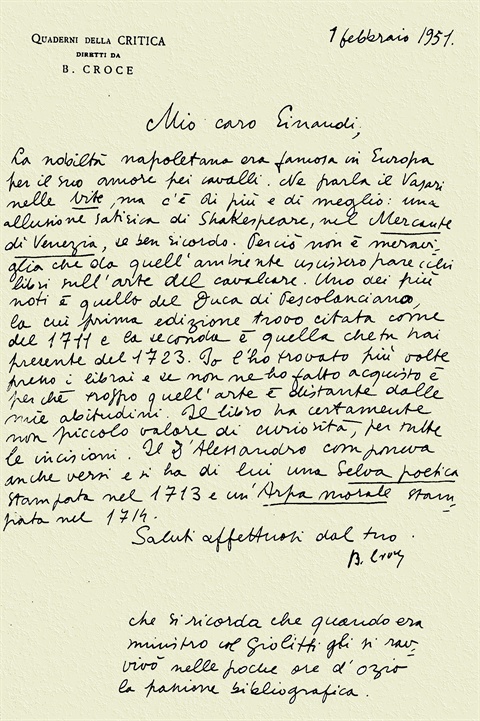 QUADERNI DELLA CRITICA
DIRETTI DA
B. CROCE
1 febbraio 1951.
Mio caro Einaudi,
La nobiltà napoletana era famosa in Europa
per il suo amore pei cavalli. Ne parla il Vasari
nelle Vite, ma c'è di più e di meglio: una
allusione satirica di Shakespeare, nel Mercante
di Venezia, se ben ricordo. Perciò non è meravi-
glia che da quell'ambiente uscissero parecchi
libri sull'arte del cavalcare. Uno dei più
noti è quello del Duca di Pescolanciano,
la cui prima edizione trovo citata come
del 1711 e la seconda è quella che tu hai
presente del 1723. Io l'ho trovato più volte
presso i librai e se non ne ho fatto acquisto è
perchè troppo quell'arte è distante dalle
mie abitudini. Il libro ha certamente
non piccolo valore di curiosità, per tutte
le incisioni. Il D'Alessandro componeva
anche versi e si ha di lui una Selva poetica
stampata nel 1713 e un'Arpa morale stam-
pata nel 1714.
Saluti affettuosi dal tuo
B. Croce
che si ricorda che quando era
ministro col Giolitti gli si rav-
vivò nelle poche ore d'ozio
la passione bibliografica.